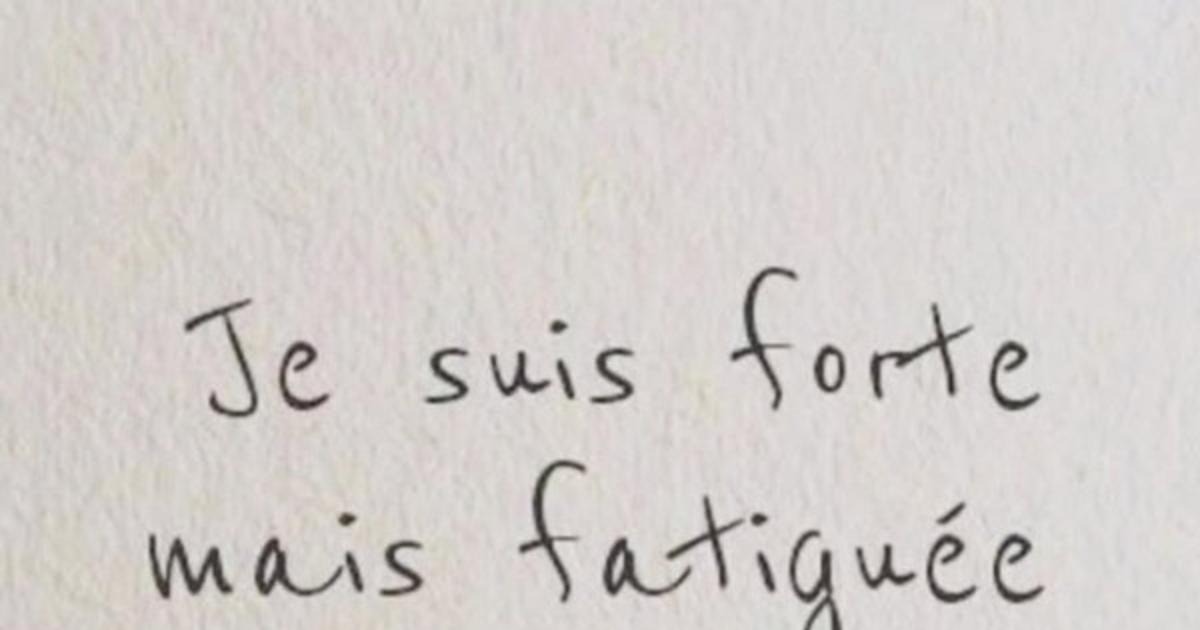 Je suis forte
mais fatiguée